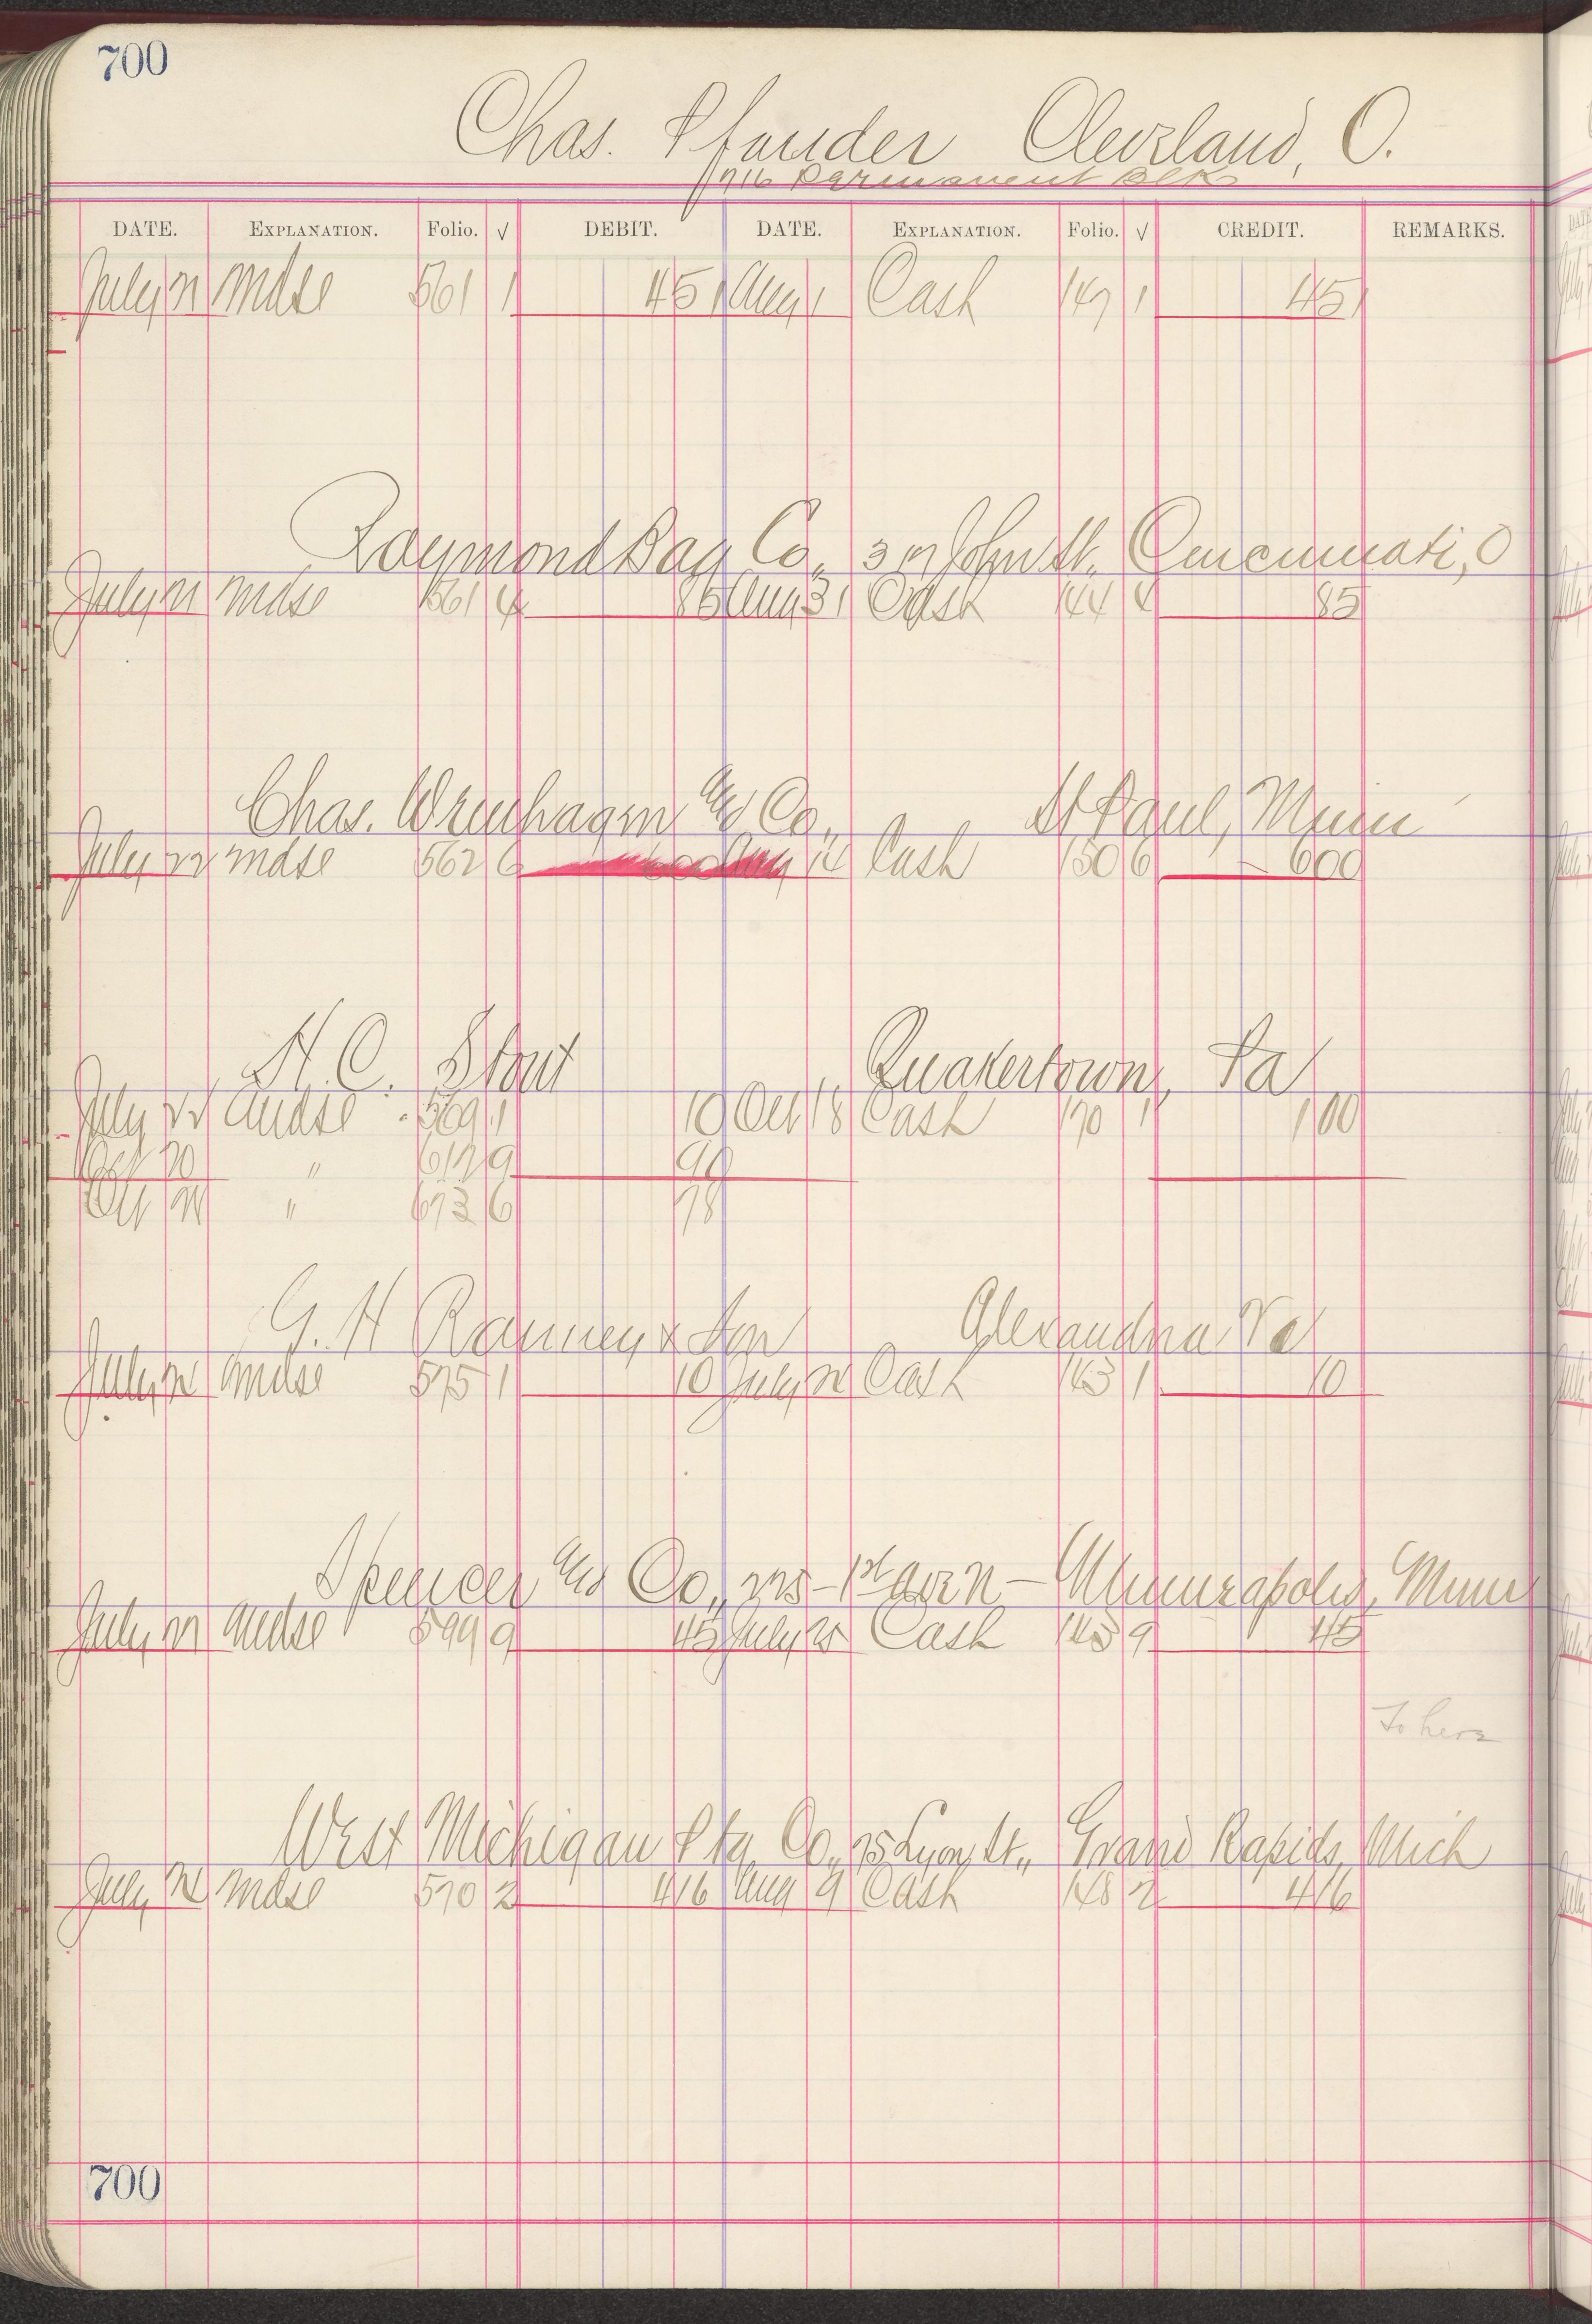 700
Chas. Pfauder Cleveland, O.
716 Permanent Blk
DATE. EXPLANATION. Folio. √ DEBIT. DATE. EXPLANATION. Folio. √ CREDIT. REMARKS.
July 21 Mdse 561 1 451 Aug 1 Cash 147 1 451
Raymond Bag Co., John St. Cincinnati, O
July 21 Mdse 561 4 85 Aug 31 Cash 144 4 85
Chas. & Co., St Paul, Minn
July 22 Mdse 562 6 600 Aug 14 Cash 150 6 600
H. C. Stout Quakertown, Pa
July 22 Mdse 569 1 10 Oct 18 Cash 170 1 100
Oct 20 " 617 9 90
Oct 21 " 673 6 78
G. H Ramey & Son Alexandria Va
July 21 Mdse 575 1 10 July 21 Cash 143 1 10
Spencer & Co., 1st Ave N - Minneapolis, Minn
July 21 Mdse 599 9 45 July 25 Cash 145 9 45
To here
West Michigan Ptg. Co., 75 Lyon St., Grand Rapids, Mich
July 21 Mdse 570 2 416 Aug 9 Cash 148 2 416
700